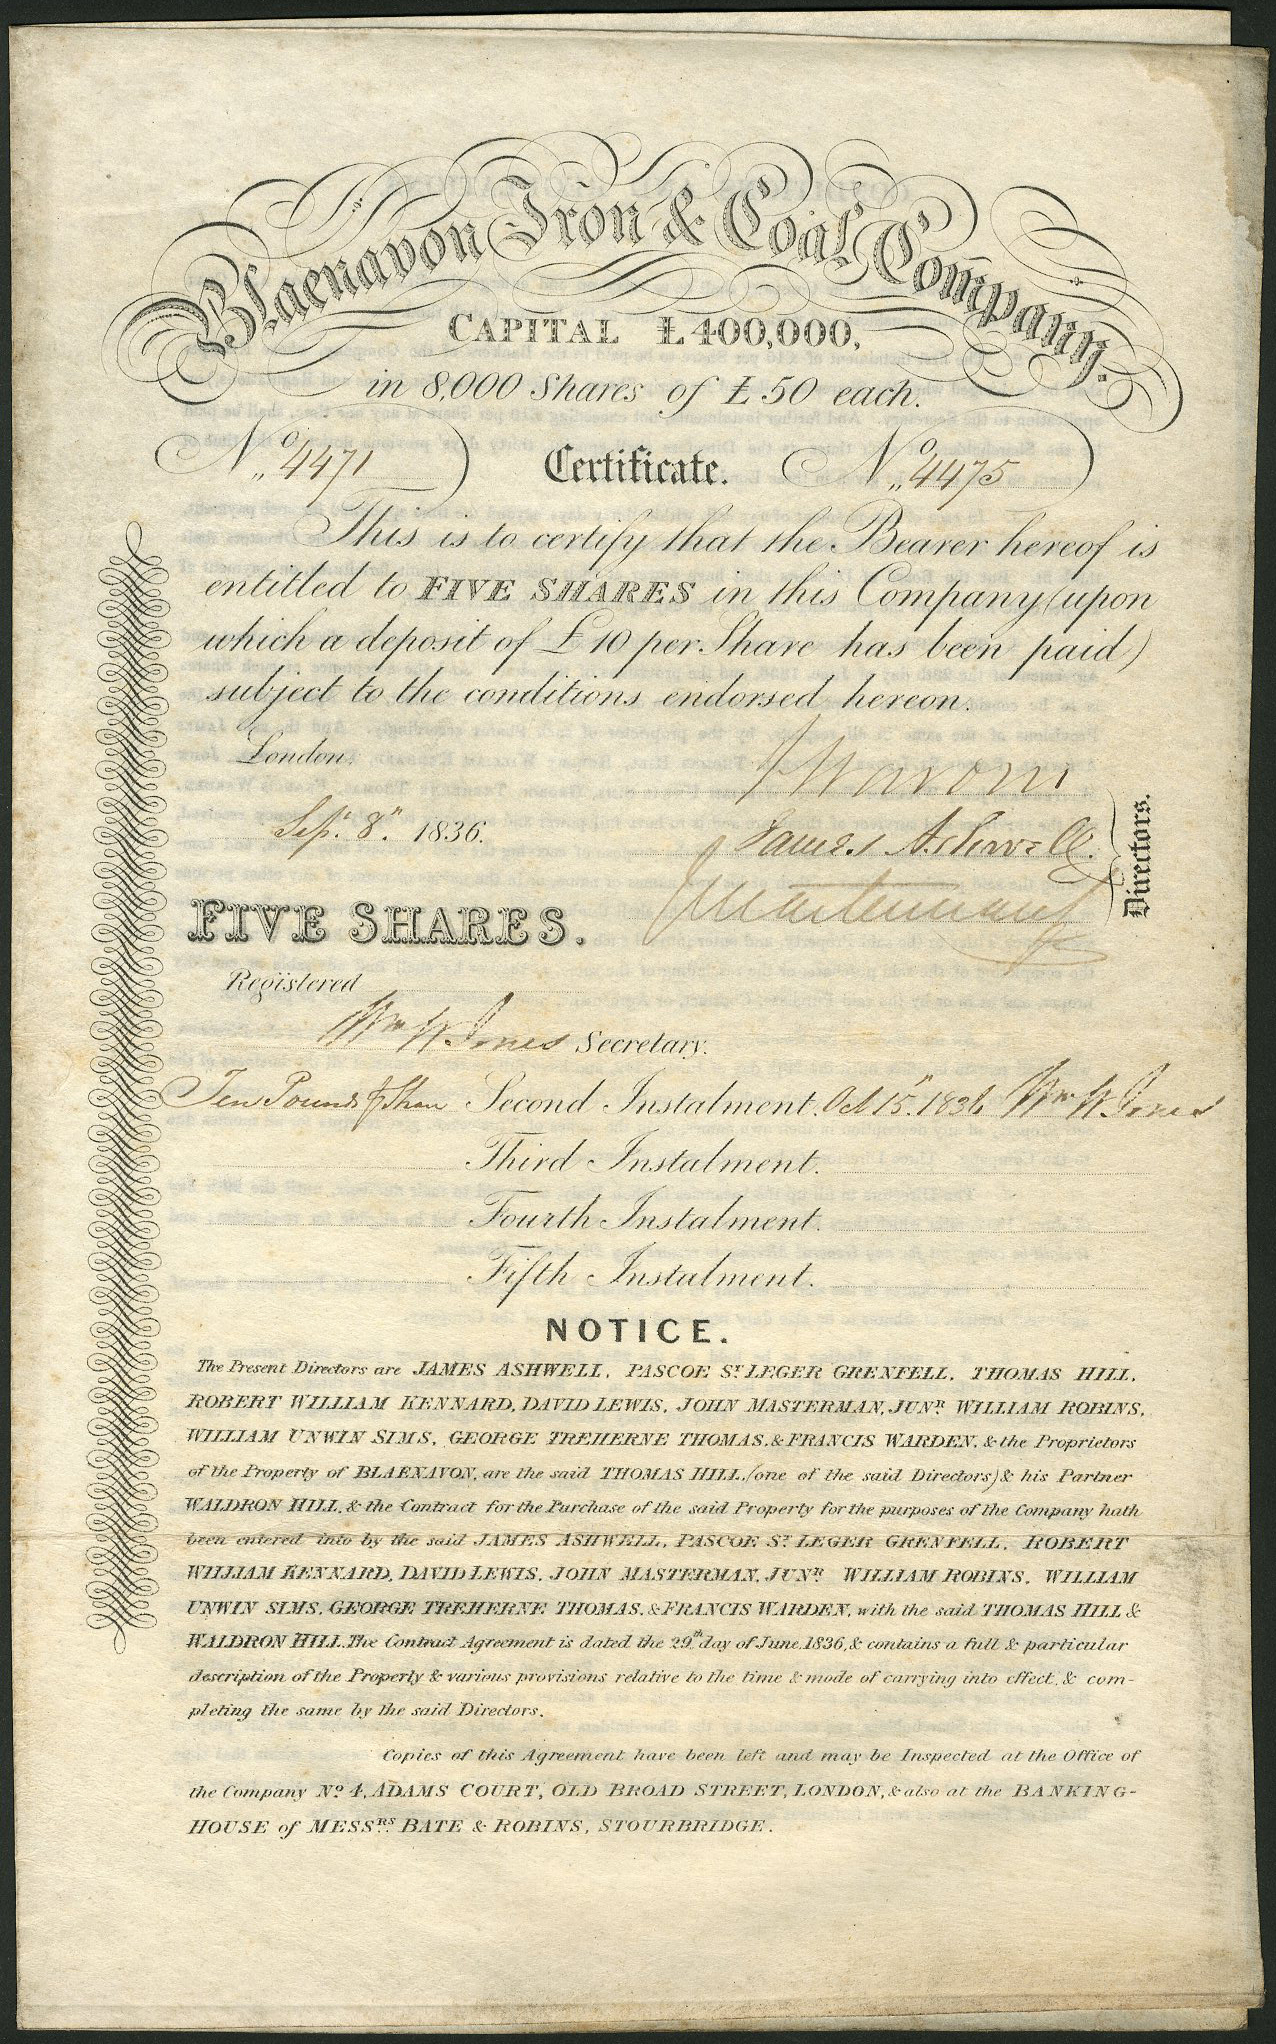 Blaenavon Iron & Coal Company.
CAPITAL £400,000,
in 8,000 Shares of £50 each.
No. 4471 Certificate. No. 4475
This is to certify that the Bearer hereof is
entitled to FIVE SHARES in this Company (upon
which a deposit of £10 per Share has been paid)
subject to the conditions endorsed hereon.
London,
Sept. 8th 1836.
James Ashwell
J Masterman Jr
Directors.
FIVE SHARES.
Registered
Wm W. Jones Secretary.
Ten Pounds Share Second Instalment. Oct 15th 1836 Wm W. Jones
Third Instalment.
Fourth Instalment.
Fifth Instalment.
NOTICE.
The Present Directors are JAMES ASHWELL, PASCOE ST. LEGER GRENFELL, THOMAS HILL,
ROBERT WILLIAM KENNARD, DAVID LEWIS, JOHN MASTERMAN, JUNR. WILLIAM ROBINS,
WILLIAM UNWIN SIMS, GEORGE TREHERNE THOMAS, & FRANCIS WARDEN, & the Proprietors
of the Property of BLAENAVON, are the said THOMAS HILL, (one of the said Directors) & his Partner
WALDRON HILL, & the Contract for the Purchase of the said Property for the purposes of the Company hath
been entered into by the said JAMES ASHWELL, PASCOE ST. LEGER GRENFELL, ROBERT
WILLIAM KENNARD, DAVID LEWIS, JOHN MASTERMAN, JUNR. WILLIAM ROBINS, WILLIAM
UNWIN SIMS, GEORGE TREHERNE THOMAS, & FRANCIS WARDEN, with the said THOMAS HILL &
WALDRON HILL. The Contract Agreement is dated the 29th day of June, 1836, & contains a full & particular
description of the Property & various provisions relative to the time & mode of carrying into effect, & com-
pleting the same by the said Directors.
Copies of this Agreement have been left and may be Inspected at the Office of
the Company No. 4, ADAMS COURT, OLD BROAD STREET, LONDON, & also at the BANKING-
HOUSE of MESSRS. BATE & ROBINS, STOURBRIDGE.